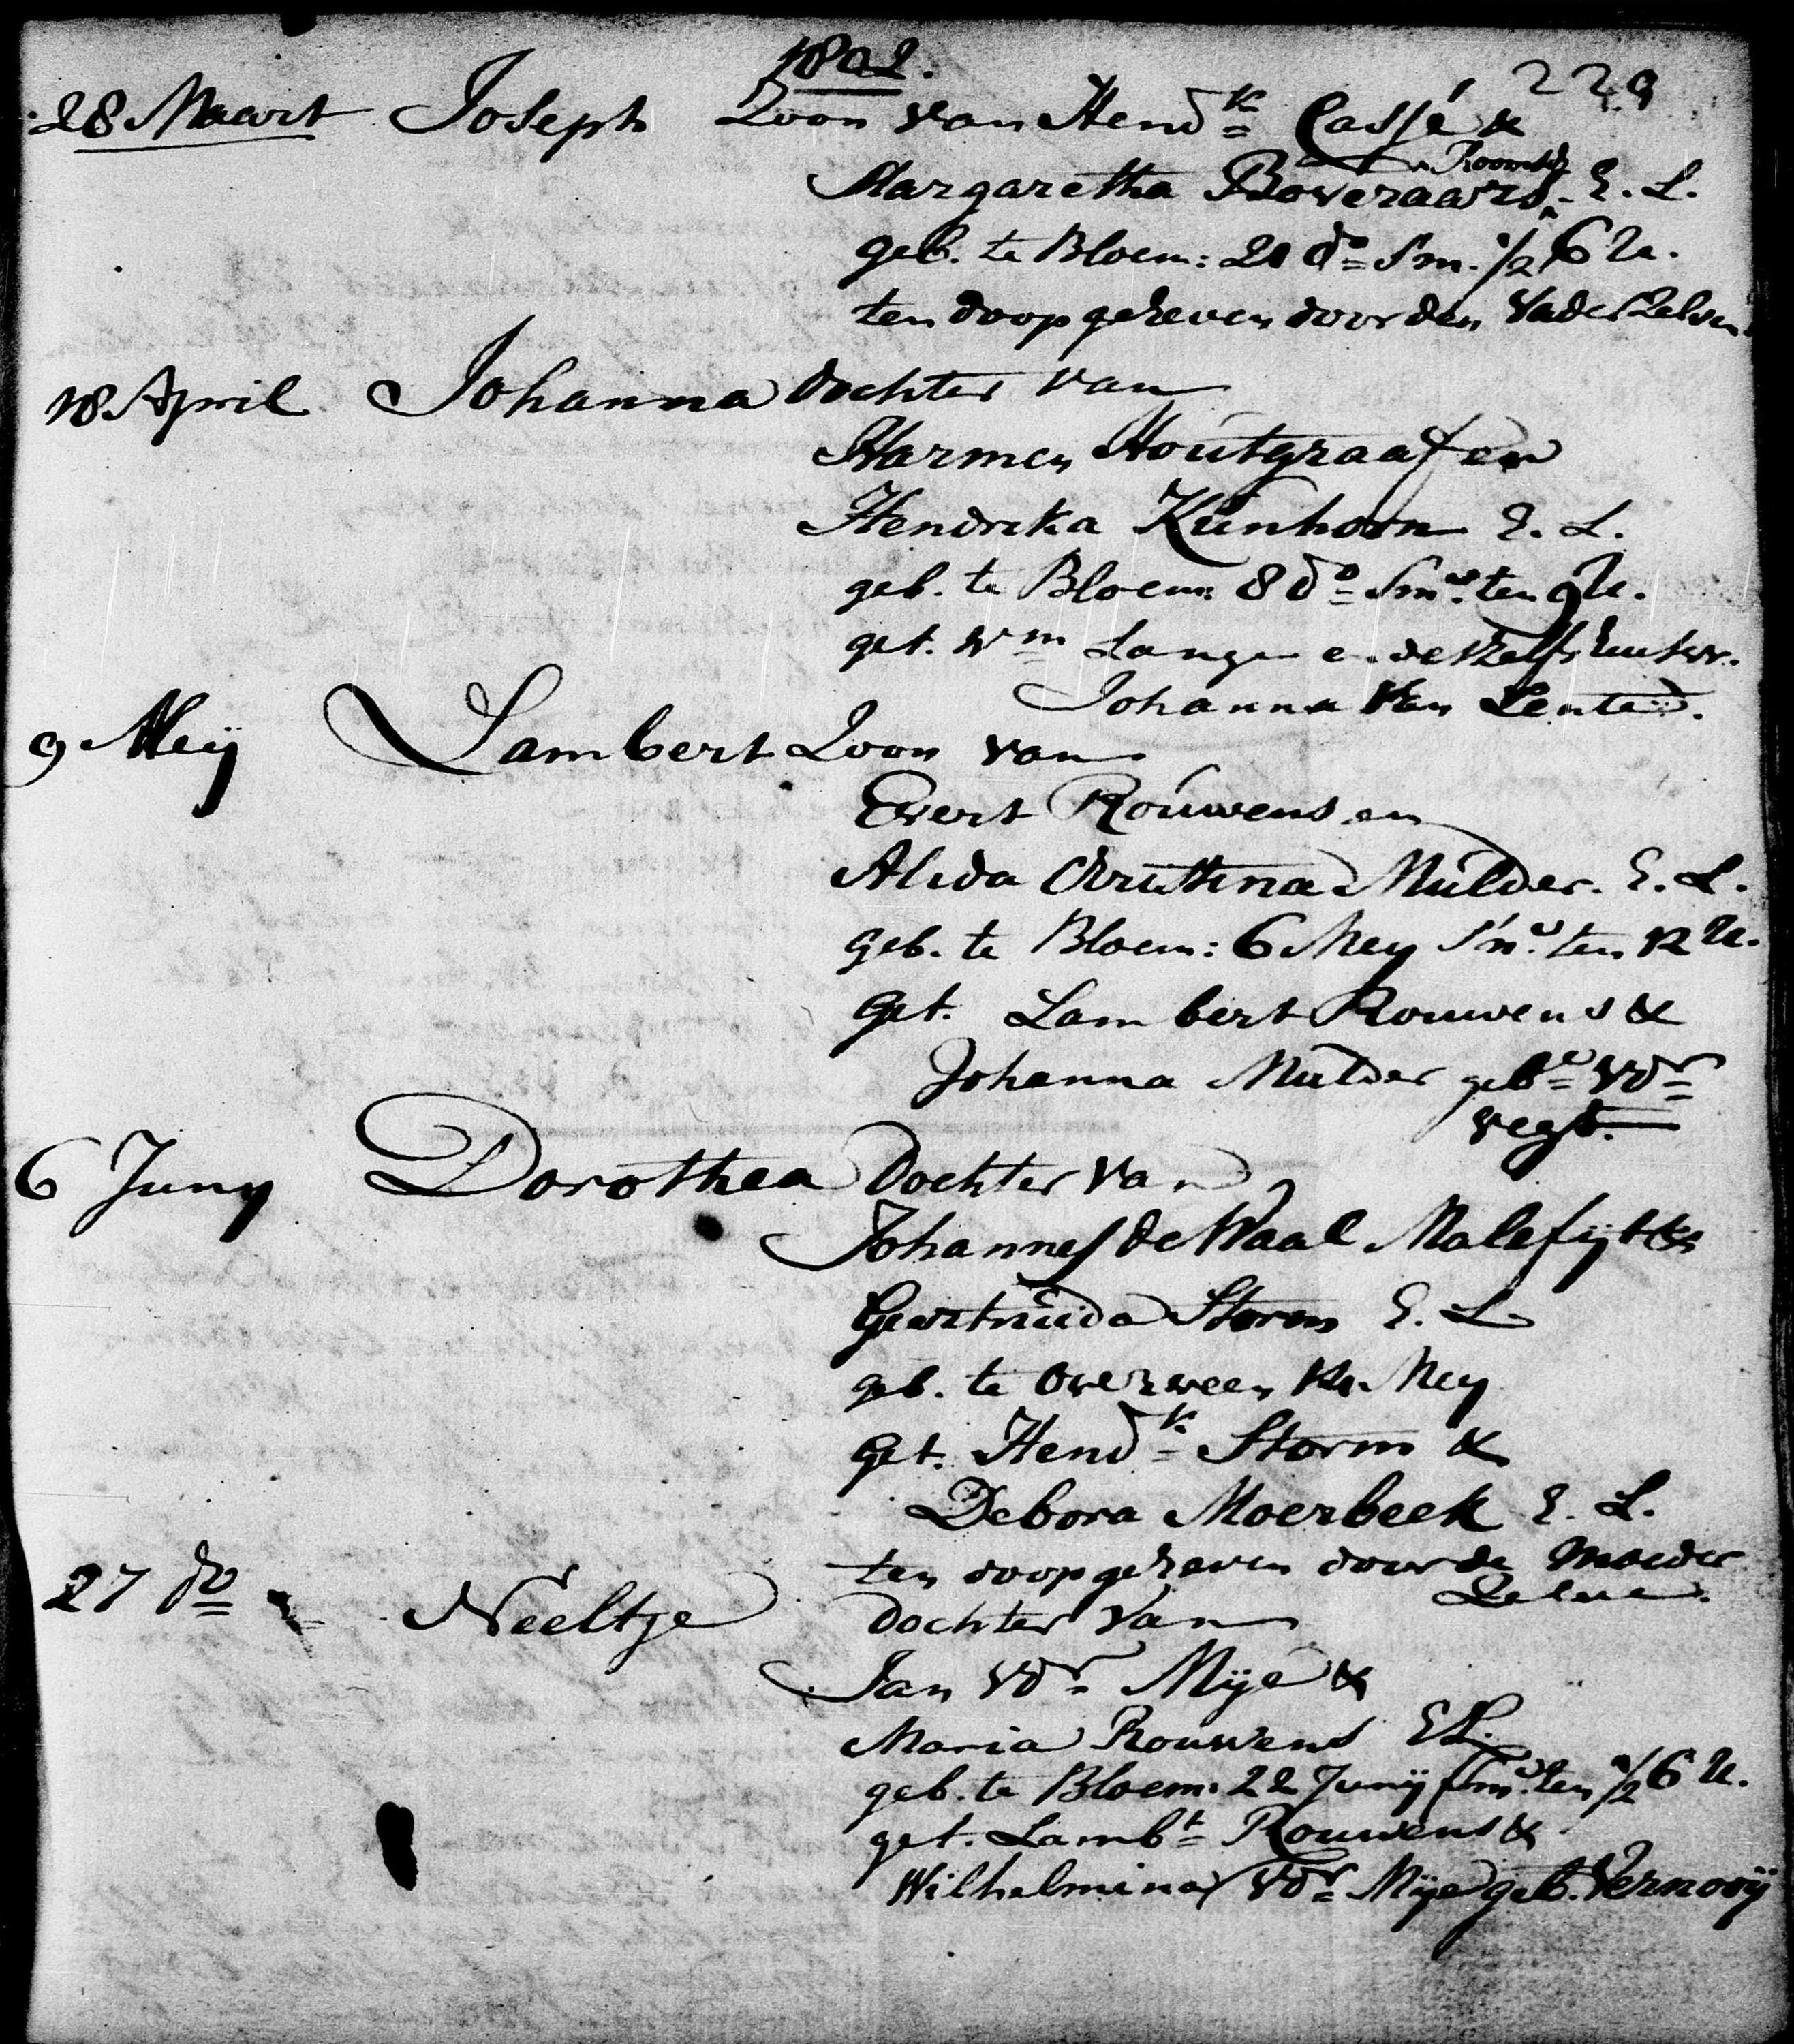 1802.
229
28 Maart Joseph Zoon van Hendk Cassé &
Roomsch
Margaretha Boveraars E. L.
geb. te Bloem: 21 do Sm. ½ 6 U.
ten doop geheven door den Vader Zelven
18 April Johanna dochter van
Harmen Houtgraaf en
Hendrika Kunhoorn E. L.
geb. te Bloem: 8 do Smd. ten 9 U.
get. Wm Lange en deszelfs huisvr.
Johanna Van Lenten.
9 Meij Lambert Zoon van
Evert Rouwens en
Alida Christina Mulder. E. L.
geb. te Bloem: 6 Mey S'nd. ten 12 U.
get. Lambert Rouwens &
Johanna Mulder gebe Vdr
Vegt.
6 Juny Dorothea Dochter Van
Johannes de Waal Malefijt &
Geertruida Storm E. L.
geb. te Overveen 14 Mey
get. Hendk Storm &
Debora Moerbeek E. L.
ten doop geheven door de Moeder
Zelve.
27 do Neeltje dochter Van
Jan Vdr Mije &
Maria Rouwens E L.
geb. te Bloem: 22 Junij Smd. ten ½ 6 U.
get. Lambt Rouwens &
Wilhelmina Vdr Mije geb. Vernooij